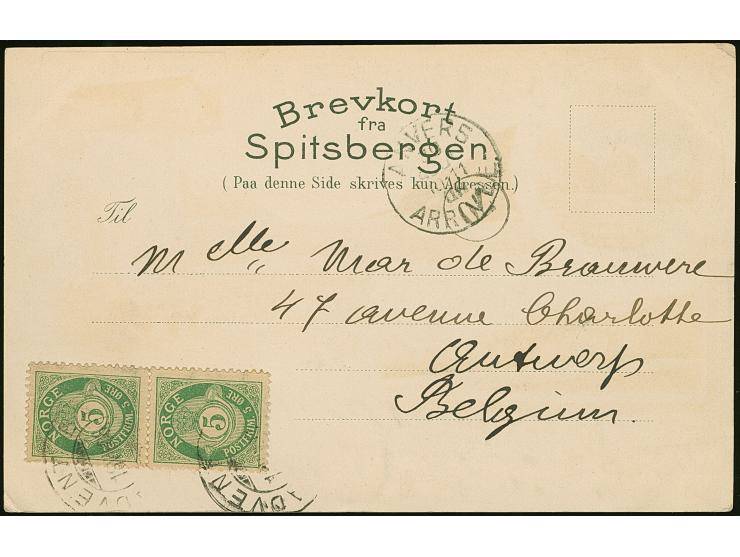 Brevkort
fra
Spitsbergen.
( Paa denne Side skrives kun Adressen.)
Til
M elle Mar de Brauwere
47 avenue Charlotte
Antwerp
Belgium.
ANVERS
11
ARRIVÉE
NORGE 5 POSTFRIM. 5 ØRE
NORGE 5 POSTFRIM 5 ØRE
ADVENT
ADVEN